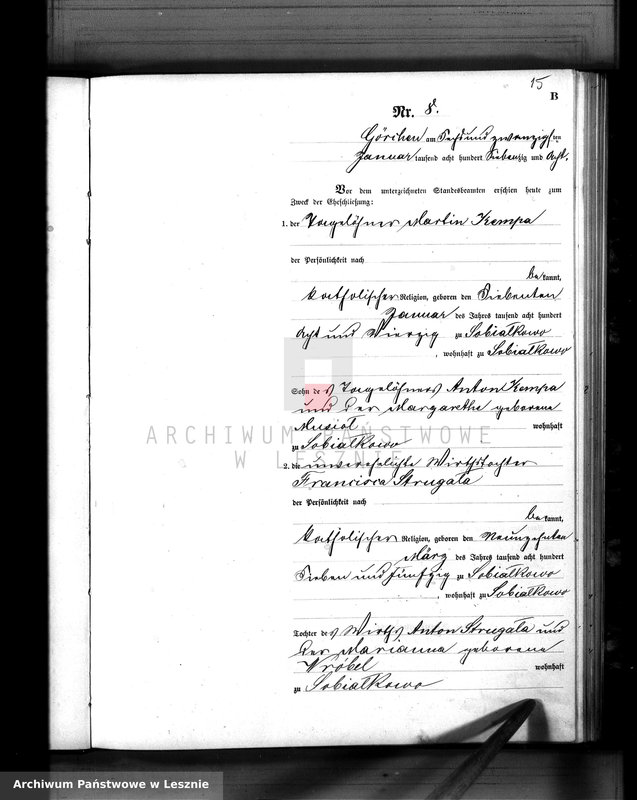 15
B
Nr. 8.
Görchen am Sechs und zwanzigsten
Januar tausend acht hundert Siebenzig und Acht.
Vor dem unterzeichneten Standesbeamten erschien heute zum
Zweck der Eheschließung:
1. der Tagelöhner Martin Kempa
der Persönlichkeit nach
bekannt,
katholischer Religion, geboren den Siebenten
Januar des Jahres tausend acht hundert
Acht und Vierzig zu Sobiałkowo
, wohnhaft zu Sobiałkowo
Sohn des Tagelöhners Anton Kempa
und der Margarethe geborene
Musioł wohnhaft
ARCHIWUM PAŃSTWOWE
zu Sobiałkowo
W LESZNIE
2. die unverehelichte Wirthstochter
Francisca Strugała
der Persönlichkeit nach
bekannt,
katholischer Religion, geboren den Neunzehnten
März des Jahres tausend acht hundert
Sieben und fünfzig zu Sobiałkowo
, wohnhaft zu Sobiałkowo
Tochter des Wirths Anton Strugała und
der Marianna geborene
Wróbel wohnhaft
zu Sobiałkowo
Archiwum Państwowe w Lesznie